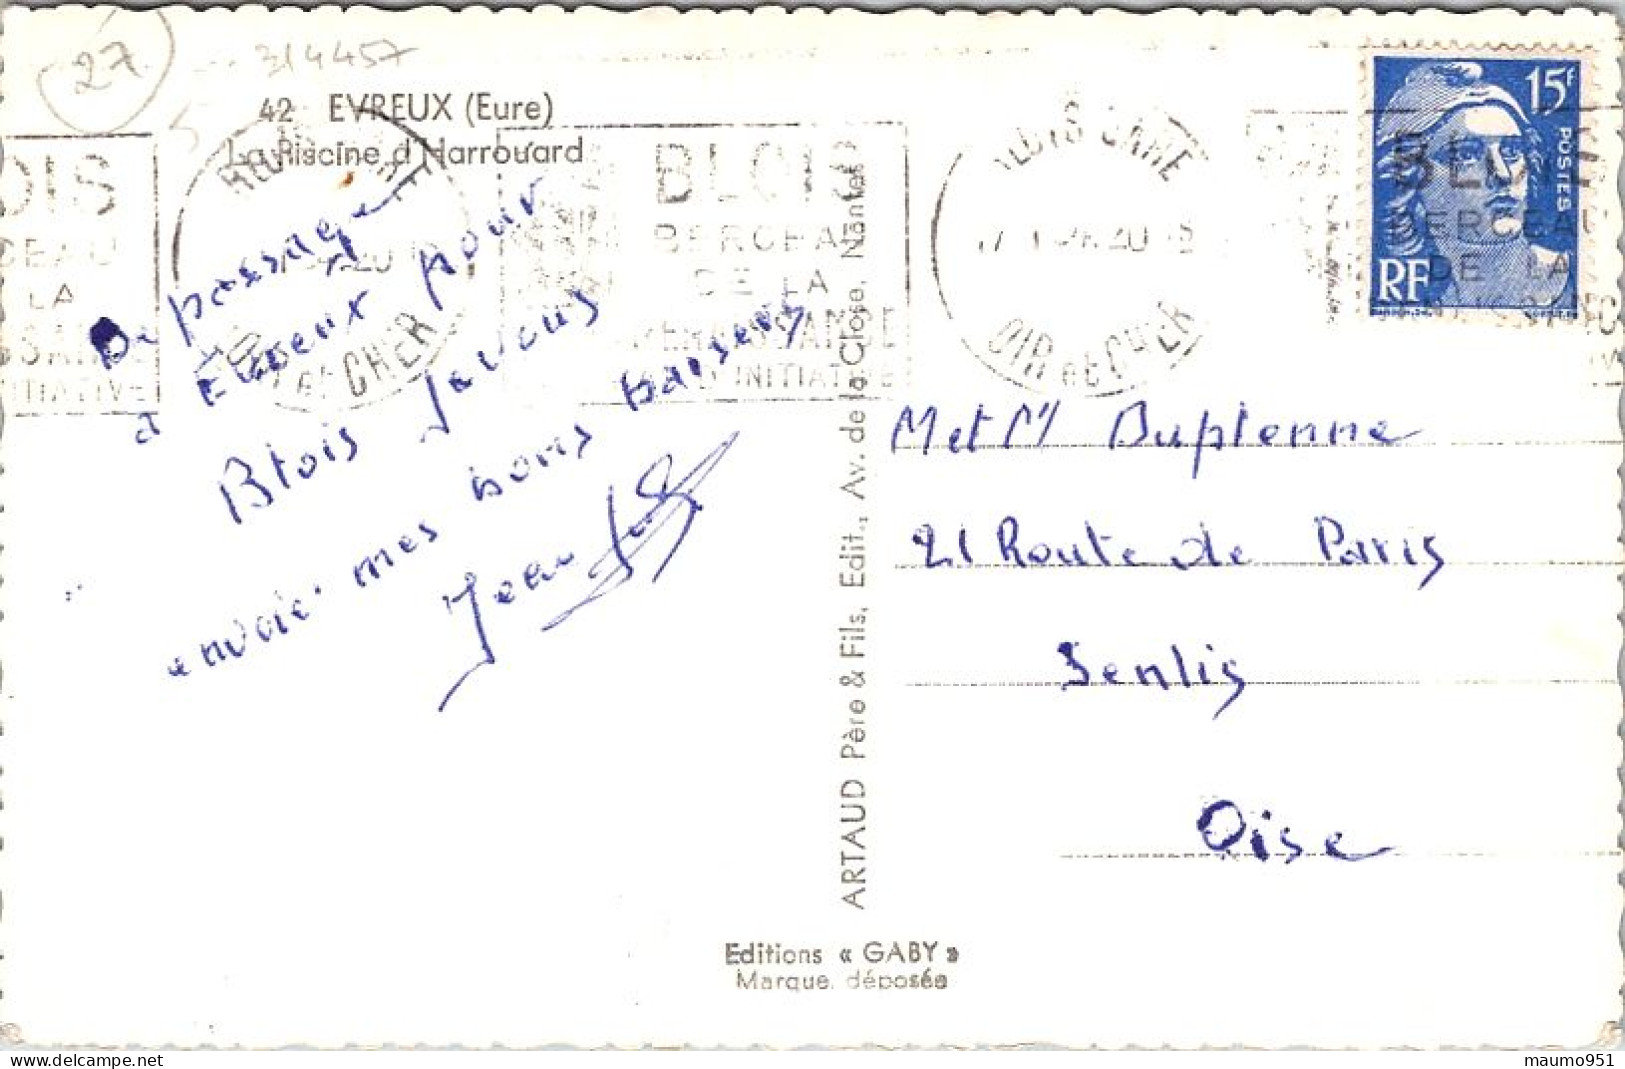 27
314457
42 EVREUX (Eure)
La Piscine d'Harrouard
De passage
a Evreux pour
Blois je vous
envoie mes bons baisers
Jean
BLOIS
BERCEAU
DE LA
RENAISSANCE
D'INITIATIVE
BLOIS GARE
LOIR et CHER
15F
POSTES
RF
BLOIS
BERCEAU
DE LA
ARTAUD Père & Fils, Edit., Av. de la Close, Nantes
M et M Duptenne
21 Route de Paris
Senlis
Oise
Editions « GABY »
Marque déposée
maumo951